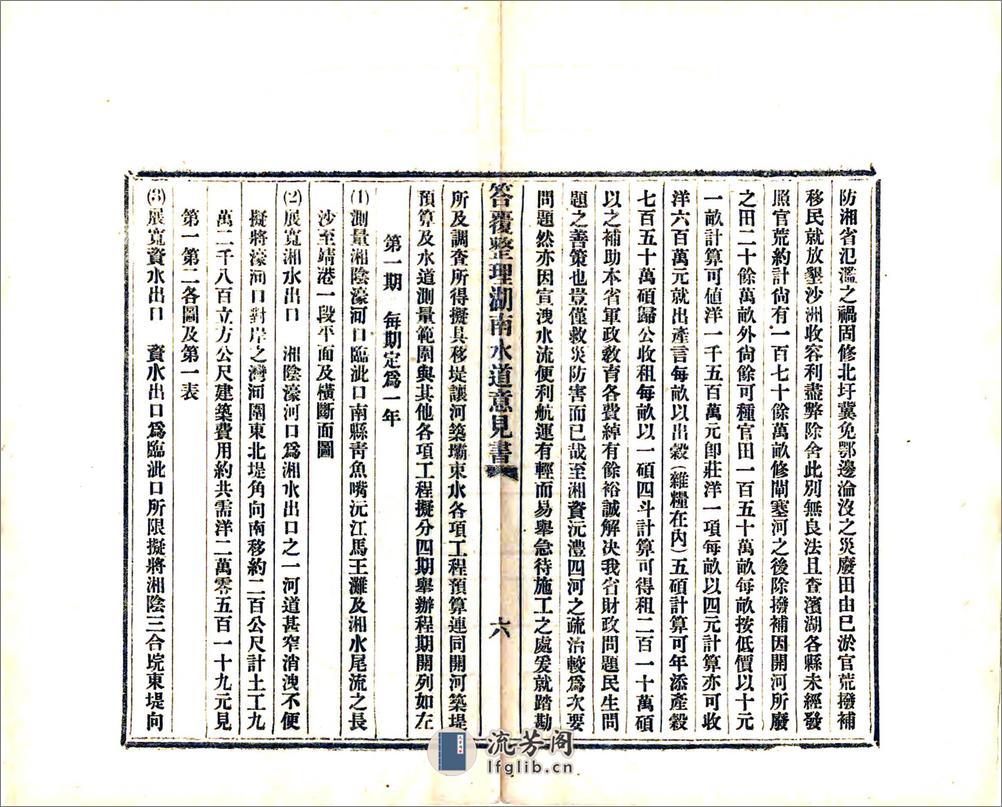 防湘省氾濫之禍固修北圩冀免鄂邊淪沒之災廢田由已淤官荒撥補
移民就放墾沙洲收容利盡弊除舍此別無良法且查濱湖各縣未經發
照官荒約計尙有一百七十餘萬畝修閘塞河之後除撥補因開河所廢
之田二十餘萬畝外尙餘可種官田一百五十萬畝每畝按低價以十元
一畝計算可値洋一千五百萬元卽莊洋一項每畝以四元計算亦可收
洋六百萬元就出產言每畝以出穀(雜糧在內)五碩計算可年添產穀
七百五十萬碩歸公收租每畝以一碩四斗計算可得租二百一十萬碩
以之補助本省軍政教育各費綽有餘裕誠解決我省財政問題民生問
題之善策也豈僅救災防害而已哉至湘資沅澧四河之疏治較爲次要
問題然亦因宣洩水流便利航運有輕而易舉急待施工之處爰就踏勘
答覆整理湖南水道意見書 六
所及調查所得擬具移堤讓河築壩束水各項工程預算連同開河築堤
預算及水道測量範圍與其他各項工程擬分四期舉辦程期開列如左
第一期 每期定爲一年
(1)測量湘陰濠河口臨泚口南縣靑魚嘴沅江馬王灘及湘水尾流之長
沙至靖港一段平面及橫斷面圖
(2)展寬湘水出口 湘陰濠河口爲湘水出口之一河道甚窄消洩不便
擬將濠河口對岸之灣河圍東北堤角向南移約二百公尺計土工九
萬二千八百立方公尺建築費用約共需洋二萬零五百一十九元見
第一第二各圖及第一表
(3)展寬資水出口 資水出口爲臨泚口所限擬將湘陰三合垸東堤向
流芳阁
lfglib.cn